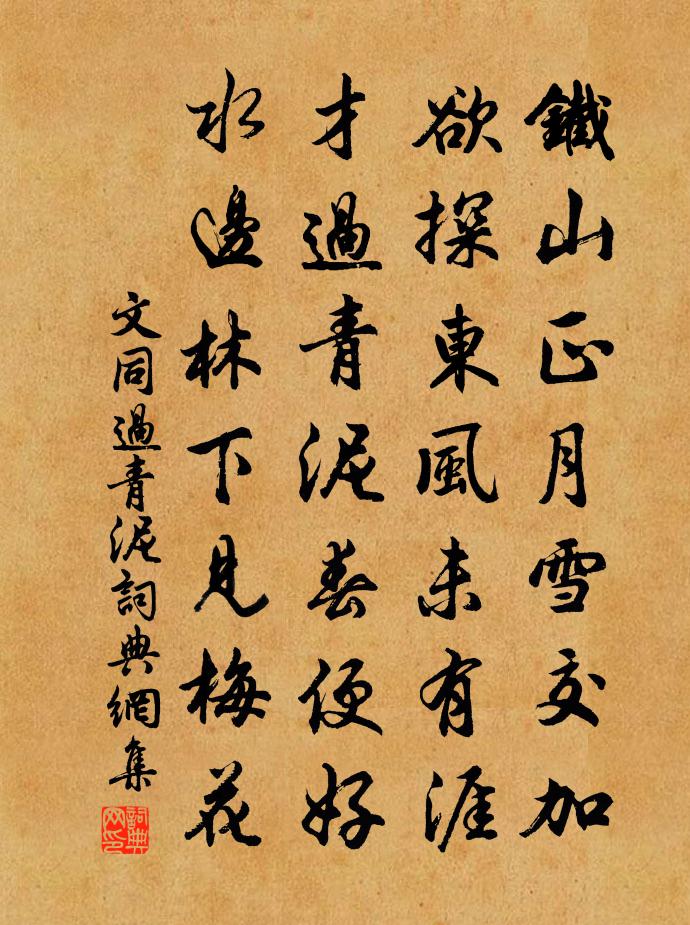 鐵山正月雪交加
欲探東風未有涯
才過青泥春便好
水邊林下見梅花
文同過青泥詞典網集
詞典网印